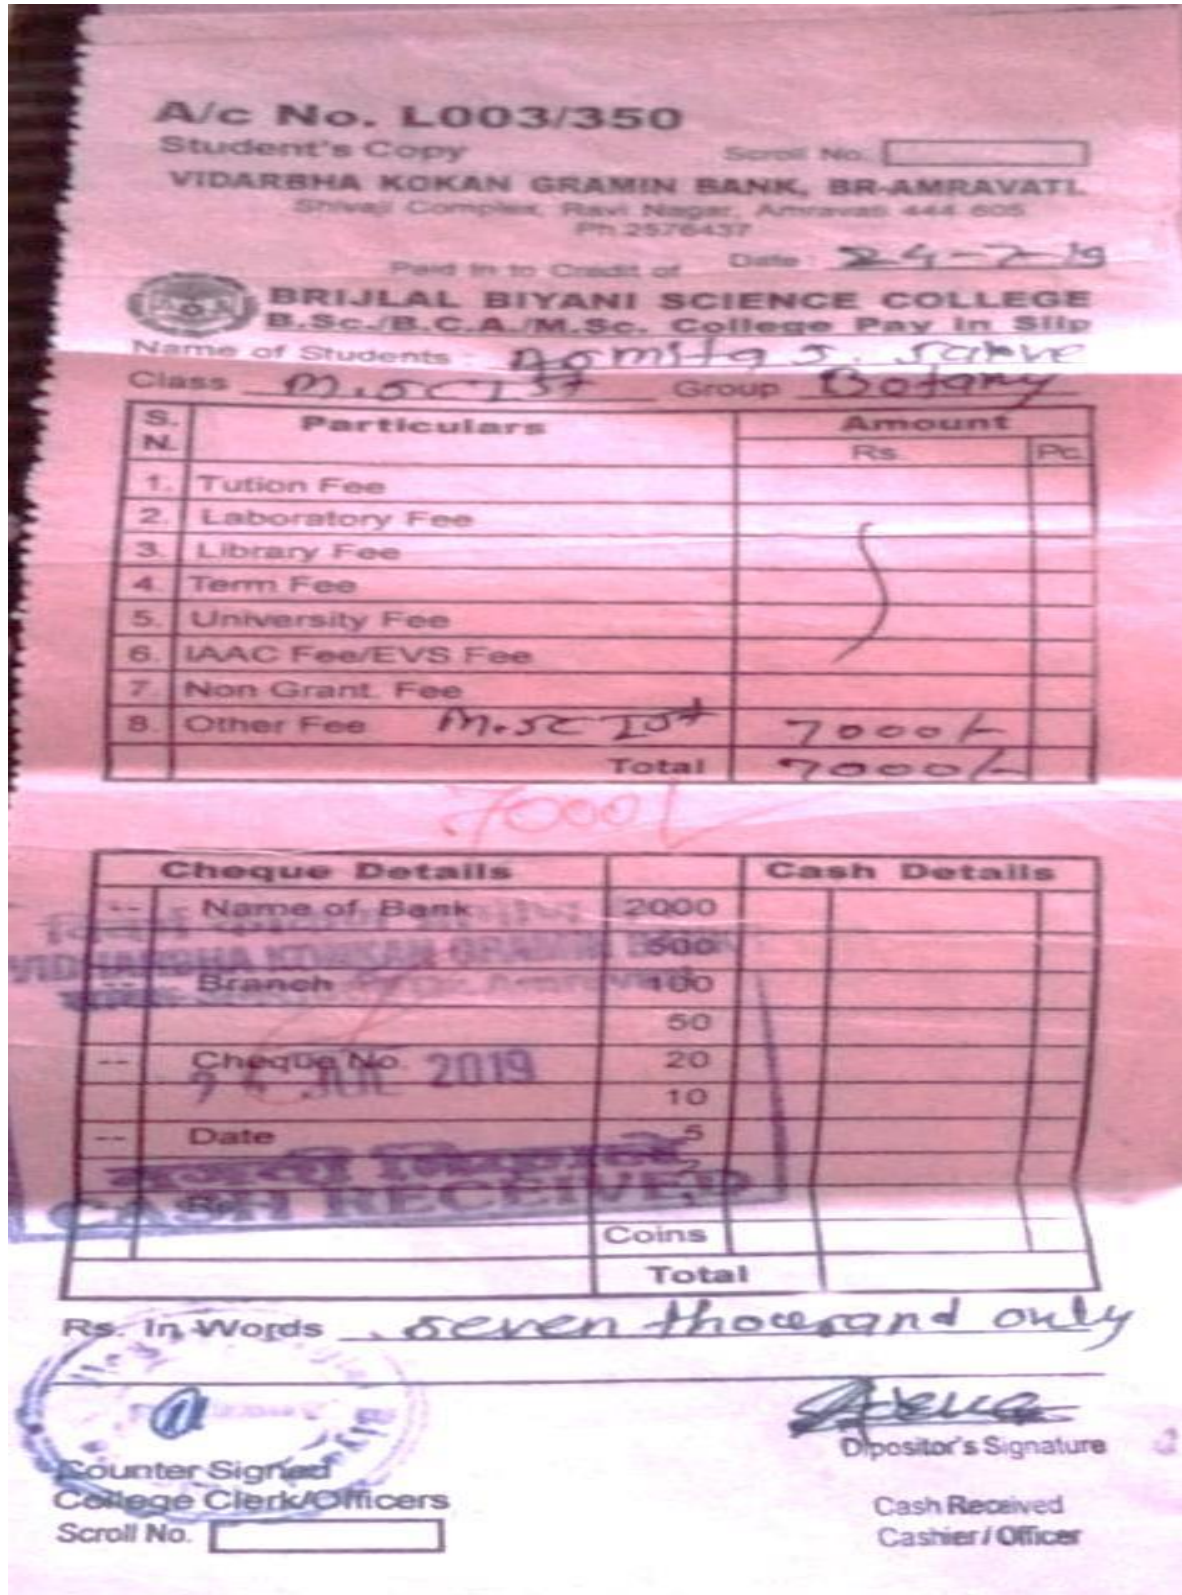 A/c No. L003/350
Student's Copy Scroll No.
VIDARBHA KOKAN GRAMIN BANK, BR-AMRAVATI.
Shivaji Complex, Ravi Nagar, Amravati 444 605
Ph.2576437
Paid In to Credit of Date : 24-7-19
BRIJLAL BIYANI SCIENCE COLLEGE
B.Sc./B.C.A./M.Sc. College Pay In Slip
Name of Students :
Class M.SC Ist Group Botany
S.N. Particulars Amount
Rs. Pc.
1. Tution Fee
2. Laboratory Fee
3. Library Fee
4. Term Fee
5. University Fee
6. IAAC Fee/EVS Fee
7. Non Grant. Fee
8. Other Fee M.SC Ist 7000/-
Total 7000/-
7000/-
Cheque Details Cash Details
-- Name of Bank 2000
500
VIDHARBHA KONKAN GRAMIN BANK
-- Branch 100
50
-- Cheque No. 20
24 JUL 2019
10
-- Date 5
2
CASH RECEIVED
Coins
Total
Rs. In Words seven thousand only
Dipositor's Signature
Counter Signed
College Clerk/Officers Cash Received
Scroll No. Cashier / Officer